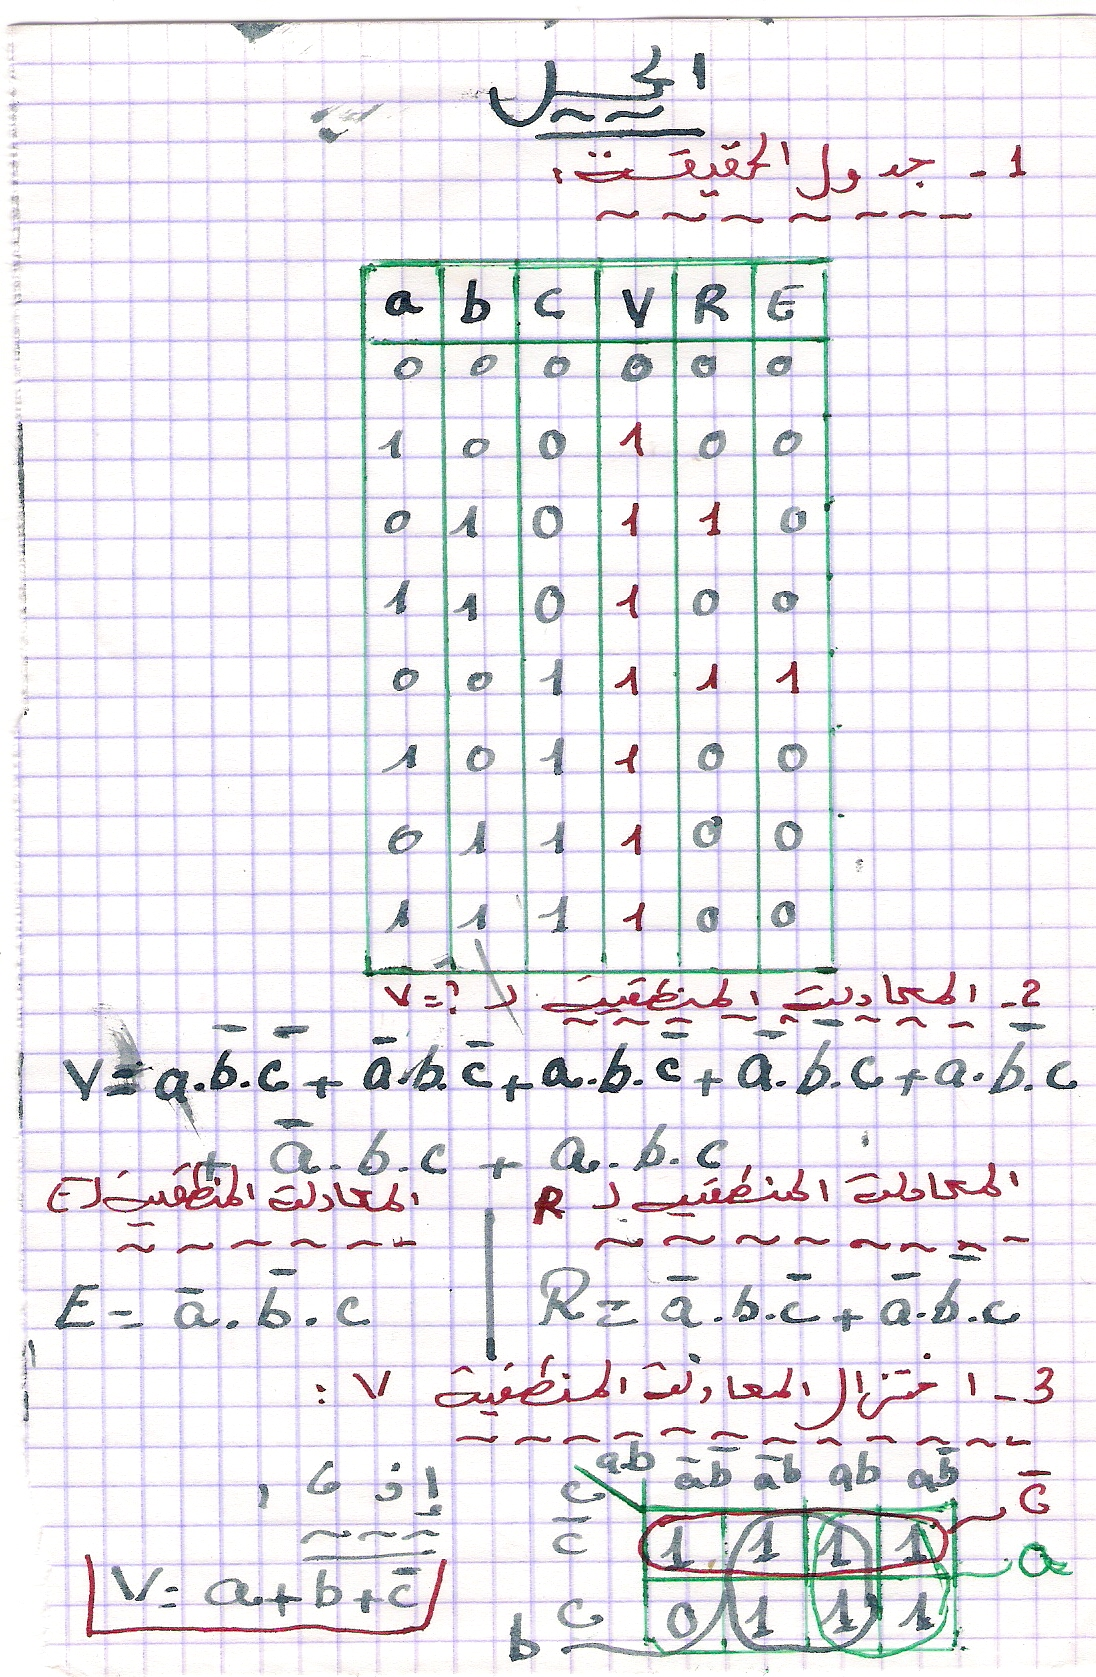 الحل
1 - جدول الحقيقة:
a b c V R E
0 0 0 0 0 0
1 0 0 1 0 0
0 1 0 1 1 0
1 1 0 1 0 0
0 0 1 1 1 1
1 0 1 1 0 0
0 1 1 1 0 0
1 1 1 1 0 0
2 - المعادلة المنطقية لـ V=?
V = a.b̄.c̄ + ā.b.c̄ + a.b.c̄ + ā.b̄.c + a.b̄.c
+ ā.b.c + a.b.c
المعادلة المنطقية لـ R
المعادلة المنطقية لـ E
R = ā.b.c̄ + ā.b̄.c
E = ā.b̄.c
3 - اختزال المعادلة المنطقية V :
ab āb̄ āb ab ab̄
c
c̄ 1 1 1 1 c̄
c 0 1 1 1 a
b
إذن
V = a + b + c̄